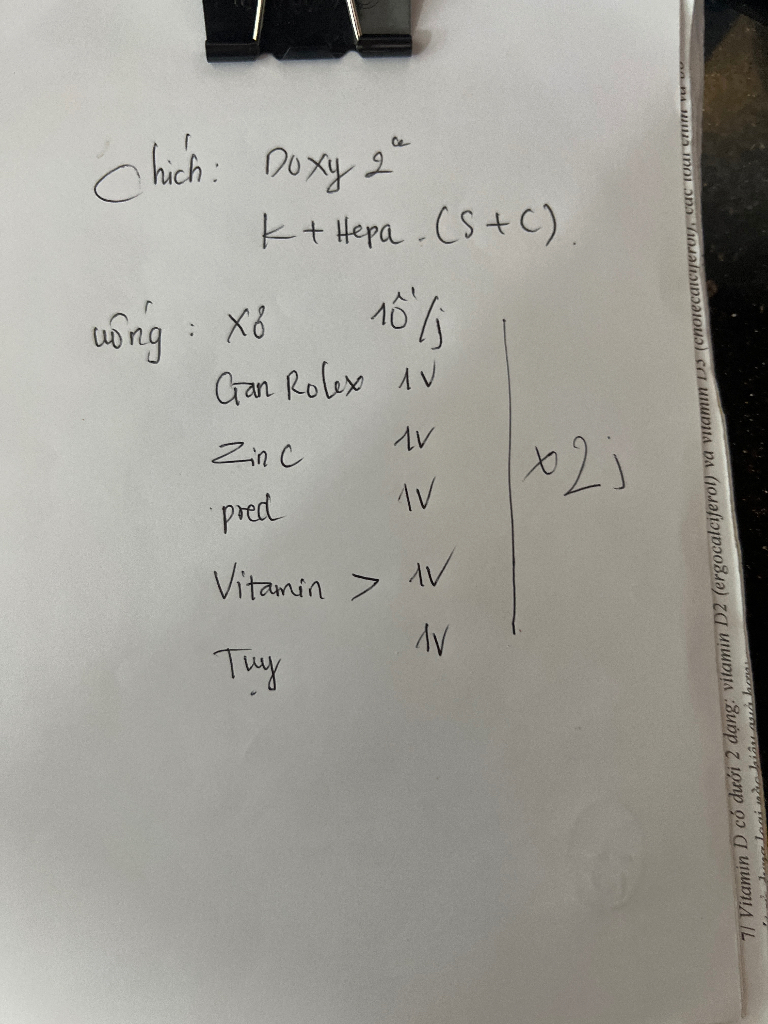 Chích: Doxy 2cc
K + Hepa. (S + C).
uống: X8 1ố/j
Gan Rolex 1V
Zin C 1V
pred 1V
Vitamin > 1V
Tụy 1V
x 2j
7/ Vitamin D có dưới 2 dạng: vitamin D2 (ergocalciferol) và vitamin D3 (cholecalciferol), các loại